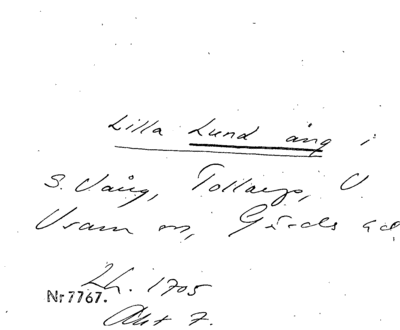 Lilla Lund äng i
S. Vång, Tollarp, V.
Vram sn, Gärds hd
Lh. 1705
Nr 7767.
Akt 7.